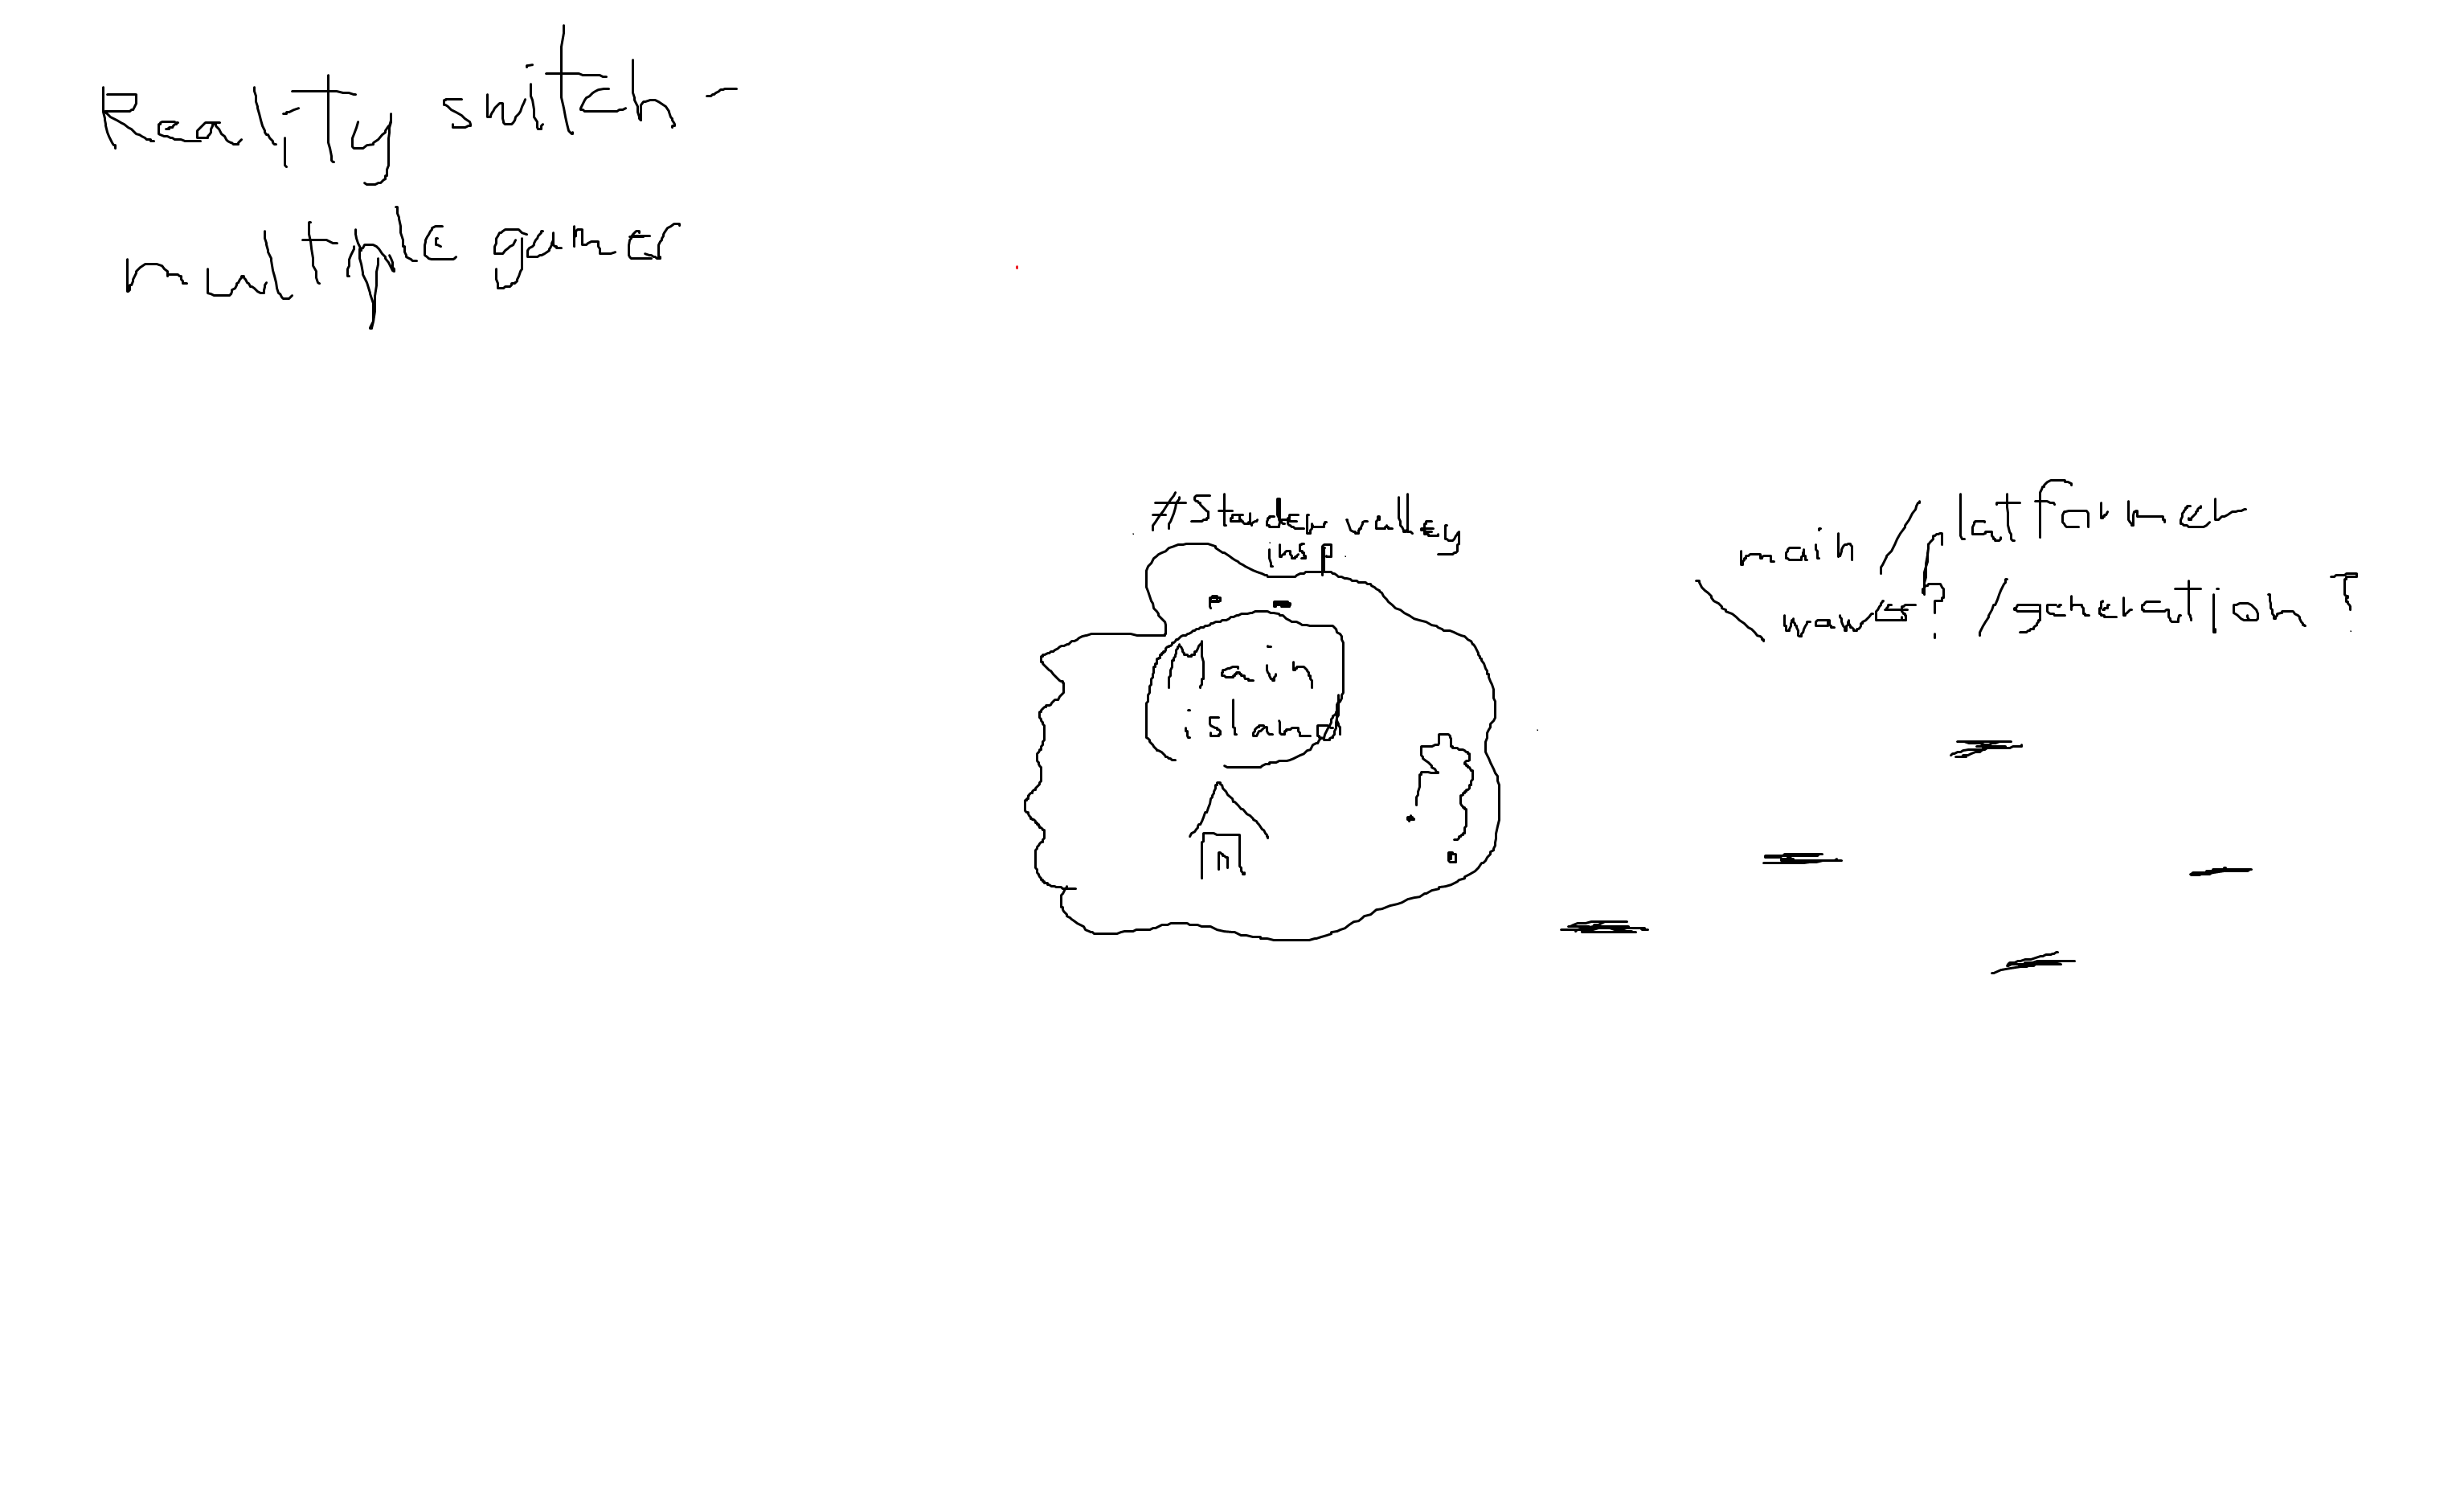 Reality switch -
multiple games
#Stardew valley
insp.
Main
island
main / platformer
\ waves? /generation?